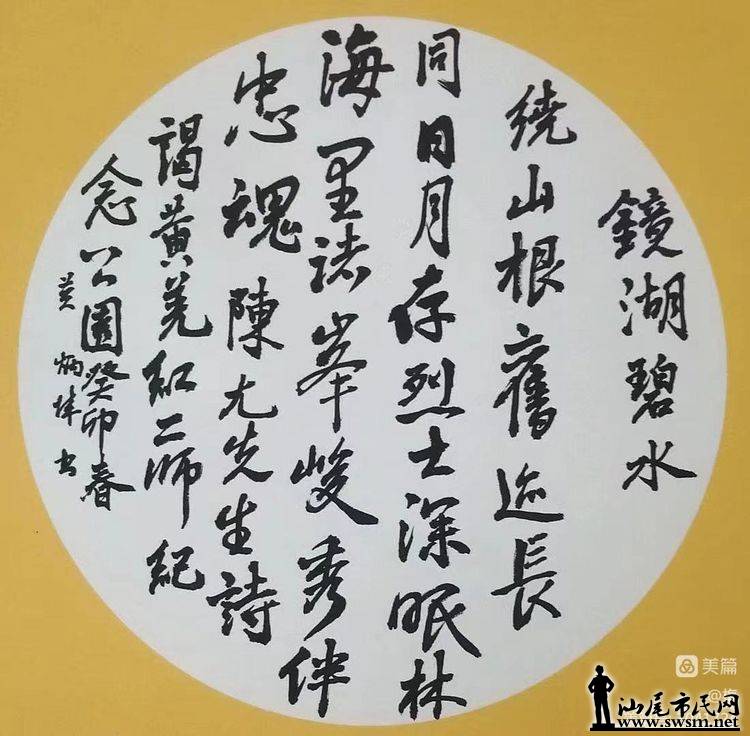 鏡湖碧水
繞山根舊迹長
同日月存烈士深眠林
海里諸峯峻秀伴
忠魂 陳尤先生詩
謁黃羌紅二师紀
念公園癸卯春
黃炳 书
美篇
汕尾市民网
www.swsm.net